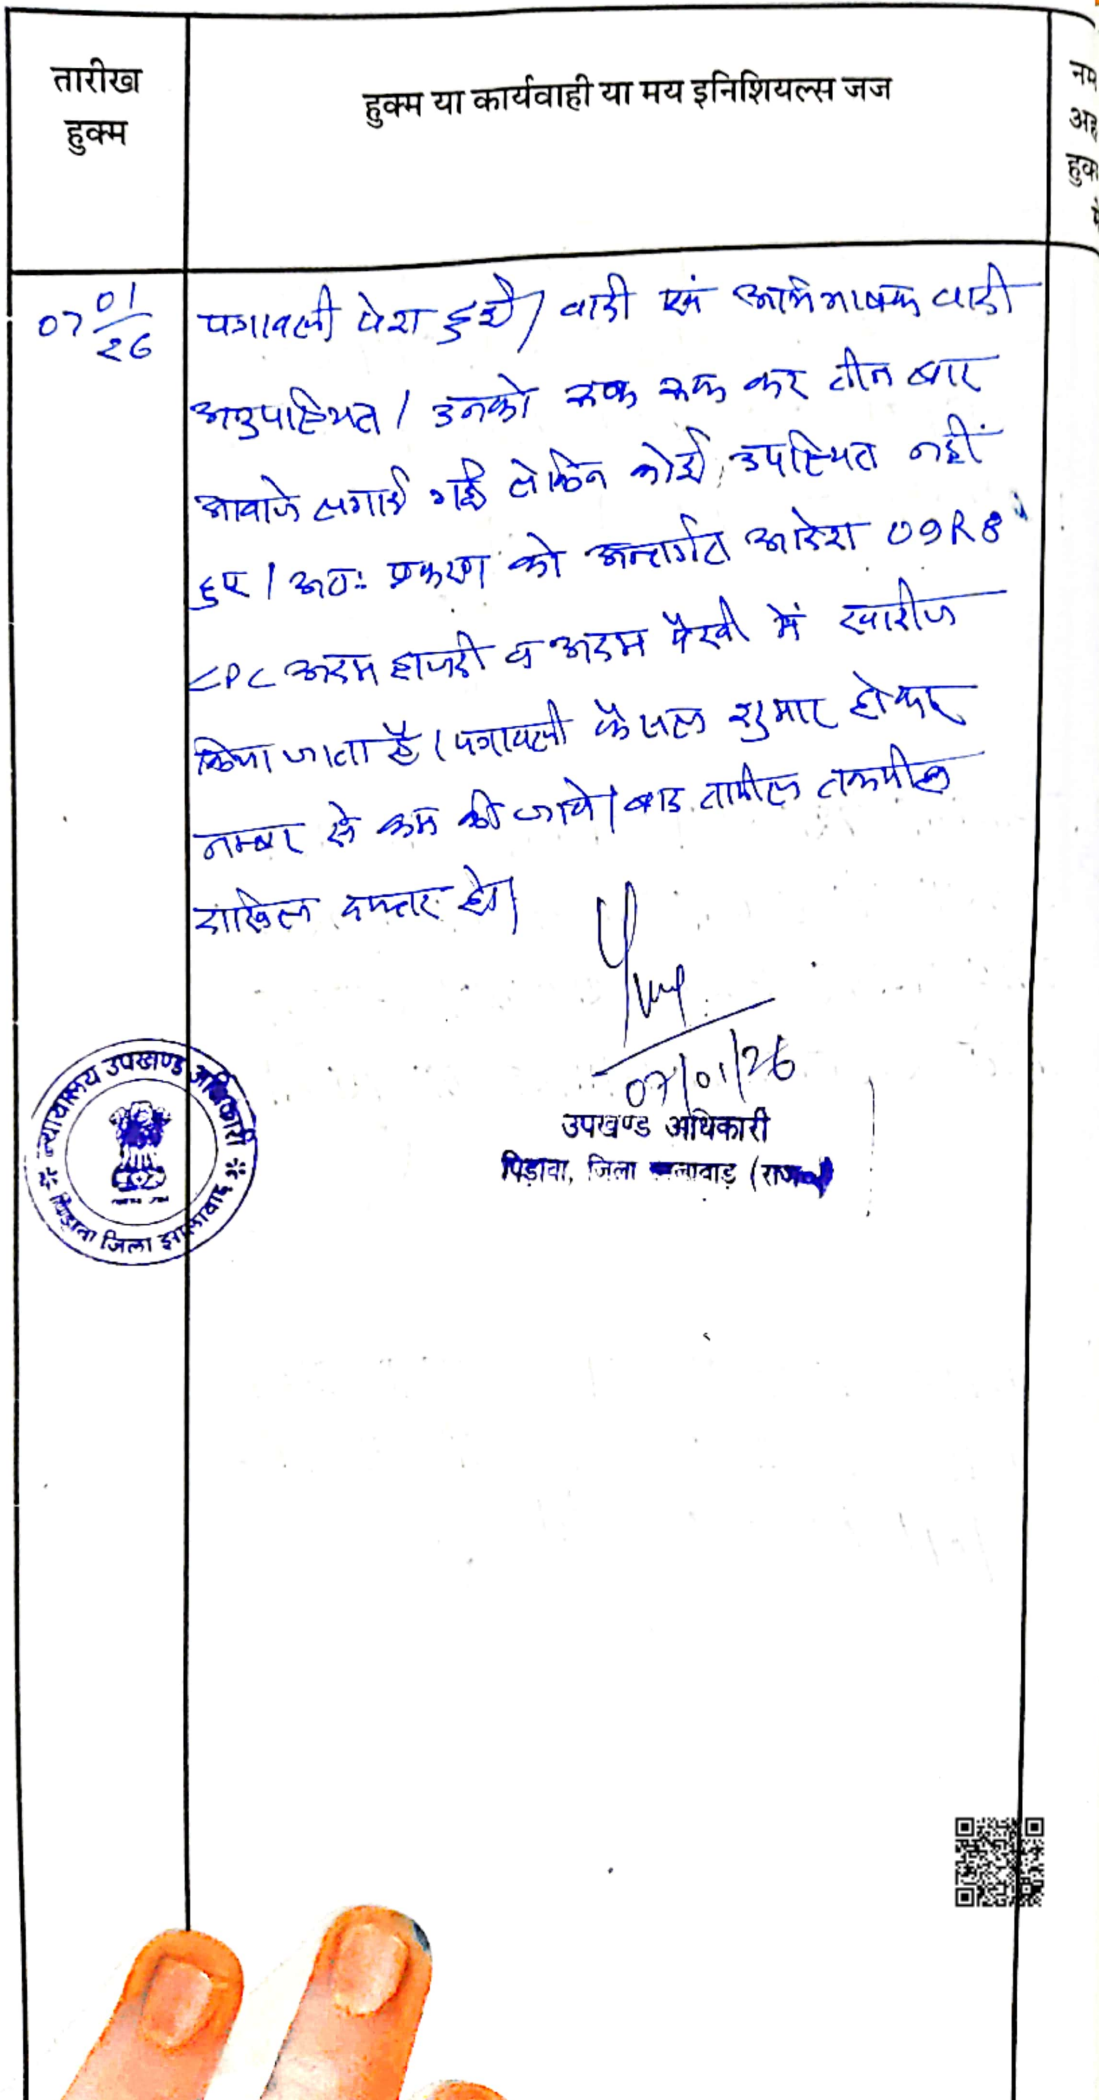 तारीख
हुक्म
हुक्म या कार्यवाही या मय इनिशियल्स जज
नम
अह
हुक
07 01/26
पत्रावली पेश हुई। वादी एवं अभिभाषक वादी
अनुपस्थित। उनको रूक रूक कर तीन बार
आवाजे लगाई गई लेकिन कोई उपस्थित नहीं
हुए। अतः प्रकरण को अन्तर्गत आदेश 09R8
CPC अदम हाजरी व अदम पैरवी में खारीज
किया जाता है। पत्रावली फैसल शुमार होकर
नम्बर से कम की जावे। बाद तामील तकमील
दाखिल दफ्तर हो।
07/01/26
उपखण्ड अधिकारी
पिड़ावा, जिला झालावाड़ (राज०)
न्यायालय उपखण्ड अधिकारी
पिड़ावा जिला झालावाड़